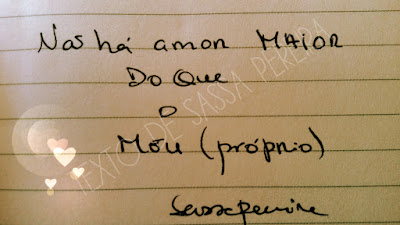 Não há amor MAIOR
Do Que
o
Meu (próprio)
Sassapereira
TEXTO DE SASSA PEREIRA